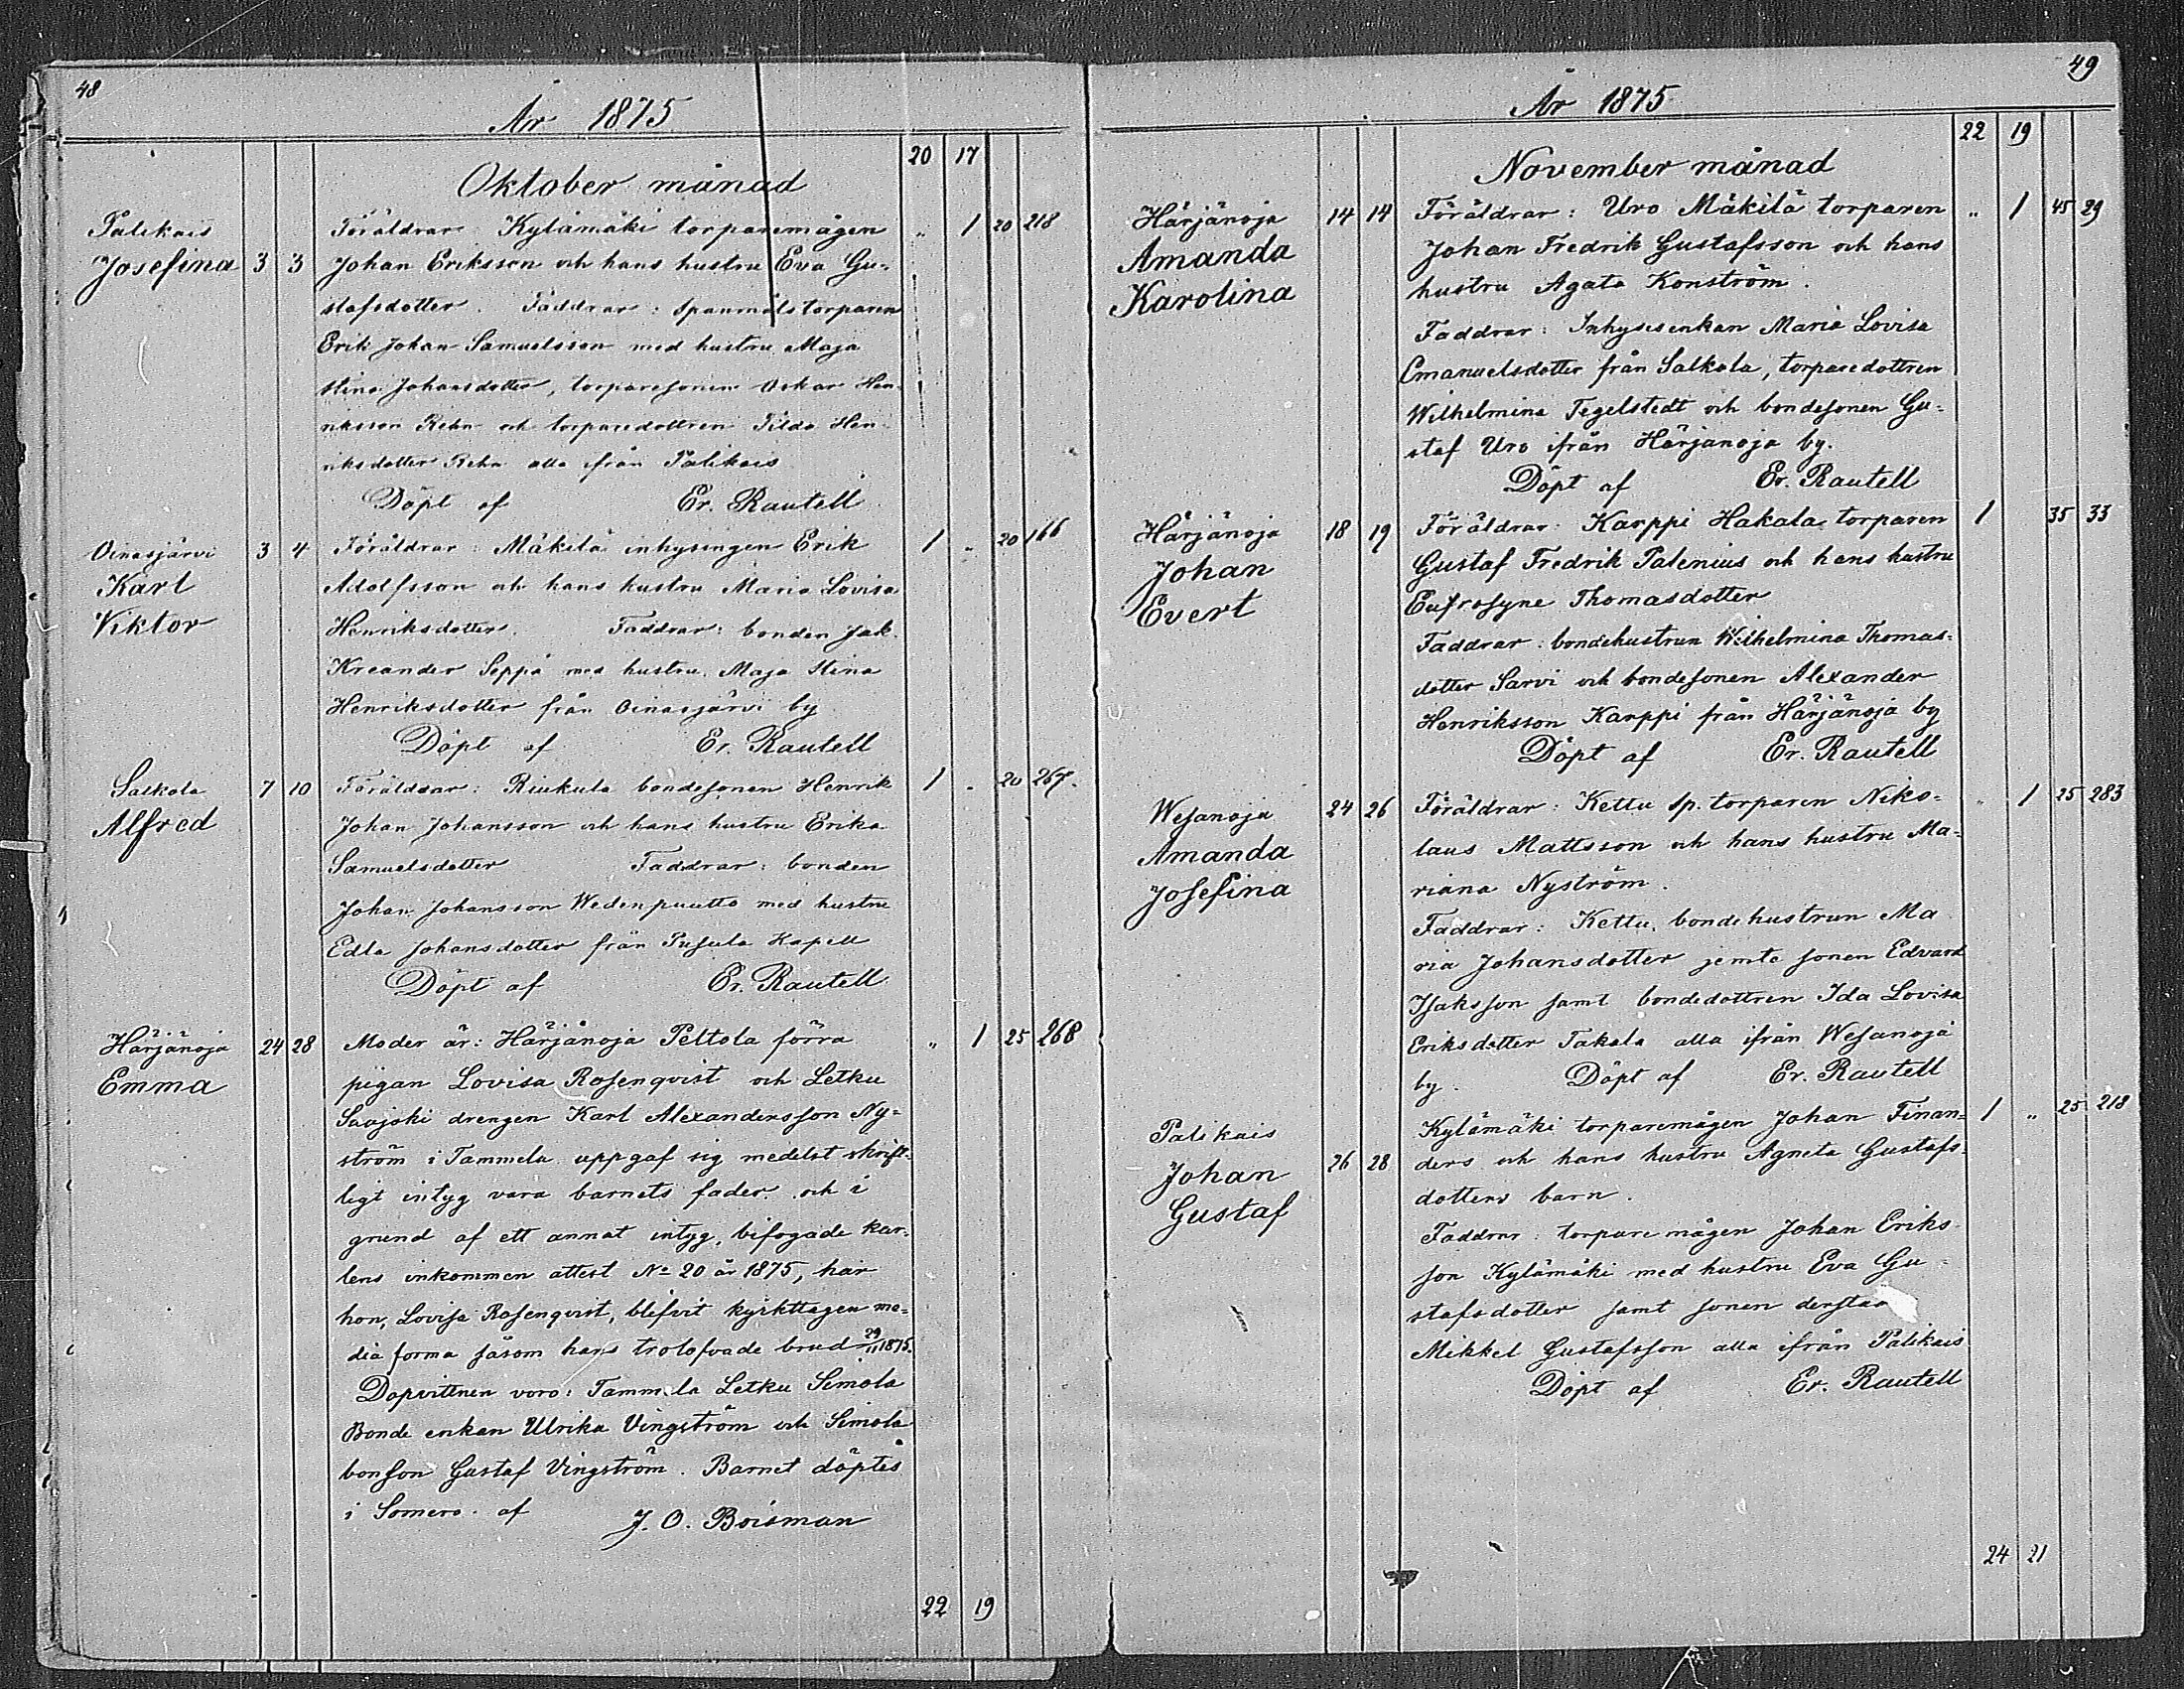 48
År 1875
20 17
Oktober månad
Palikais Föräldrar Kylämäki torparemågen „ 1 20 218
Josefina 3 3 Johan Eriksson och hans hustru Eva Gu-
stafsdotter. Faddrar: spanmåls torparen
Erik Johan Samuelsson med hustru Maja
Stina Johansdotter, torparesonen Oskar Hen-
riksson Rehn och torparedottren Tilda Hen-
riksdotter Rehn alla ifrån Palikais
Döpt af Er. Rautell
Oinasjärvi 3 4 Föräldrar: Mäkilä inhysingen Erik 1 „ 20 166
Karl Adolfsson och hans hustru Maria Lovisa
Viktor Henriksdotter. Faddrar: bonden Jak.
Kreander Seppä med hustru Maja Stina
Henriksdotter från Oinasjärvi by
Döpt af Er. Rautell
Salkola 7 10 Föräldrar: Riukula bondesonen Henrik 1 „ 20 267.
Alfred Johan Johansson och hans hustru Erika
Samuelsdotter Faddrar: bonden
Johan Johansson Wedenpuutto med hustru
Edla Johansdotter från Pusula Kapell
Döpt af Er. Rautell
Härjänoja 24 28 Moder är: Härjänoja Peltola förra „ 1 25 268
Emma pigan Lovisa Rosenqvist och Letku
drengen Karl Alexandersson Ny-
ström i Tammela uppgaf sig medelst skrift-
ligt intyg vara barnets fader och i
grund af ett annat intyg, bifogade kar-
lens inkommen attest No 20 år 1875, har
hon, Lovisa Rosenqvist, blifvit kyrkttagen me-
dia forma såsom hans trolofvade brud 29/11 1875.
Dopvittnen voro: Tammela Letku Simola
Bonde enkan Ulrika Vingström och Simola
bonson Gustaf Vingström. Barnet döptes
i Somero af J. O. Boisman
22 19
49
År 1875
22 19
November månad
Härjänoja 14 14 Föräldrar: Uro Mäkilä torparen „ 1 45 29
Amanda Johan Fredrik Gustafsson och hans
Karolina hustru Agata Konström.
Faddrar: Inhysesenkan Maria Lovisa
Emanuelsdotter från Salkola, torparedottren
Wilhelmina Tegelstedt och bondesonen Gu-
staf Uro ifrån Härjänoja by.
Döpt af Er. Rautell
Härjänoja 18 19 Föräldrar: Karppi Hakala torparen 1 35 33
Johan Gustaf Fredrik Palenius och hans hustru
Evert Eufrosyne Thomasdotter
Faddrar: bondehustrun Wilhelmina Thomas-
dotter Sarvi och bondesonen Alexander
Henriksson Karppi från Härjänoja by
Döpt af Er. Rautell
Wesanoja 24 26 Föräldrar: Kettu sp. torparen Niko- „ 1 25 283
Amanda laus Mattsson och hans hustru Ma-
Josefina riana Nyström.
Faddrar: Kettu bondehustrun Ma
ria Johansdotter jemte sonen Edvard
Isaksson samt bondedottren Ida Lovisa
Eriksdotter Takala alla ifrån Wesanoja
by. Döpt af Er. Rautell
Palikais Kylämäki torparemågen Johan Finan- 1 „ 25 218
Johan 26 28 ders och hans hustru Agneta Gustafs-
Gustaf dotters barn.
Faddrar: torparemågen Johan Eriks-
son Kylämäki med hustru Eva Gu-
stafsdotter samt sonen
Mikkel Gustafsson alla ifrån Palikais
Döpt af Er. Rautell
24 21